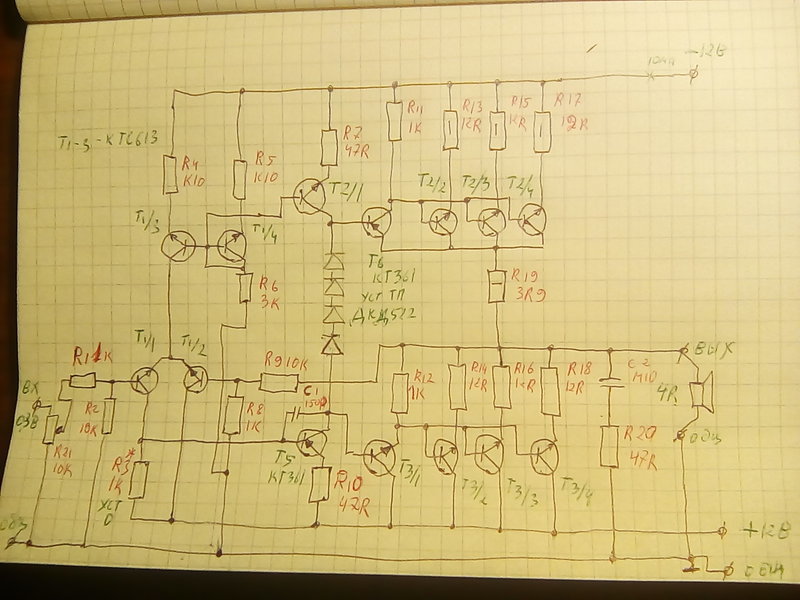 -12В
R17
R15
R13
12R
R11
1K
R7
47R
T1-3-КТС613
R4
К10
R5
К10
T2/1
T2/2
T2/3
T2/4
T1/3
T1/4
T6
КТ361
УСТ ТП
R6
3K
R19
3R9
T1/1
T1/2
R9 10K
ВЫХ
4R
C2
М10
R14
R16
R18
12R
R12
1K
C1
R8
1K
ВХ
R21
10K
R2
R3*
1K
УСТ
0
T5
КТ361
R10
47R
T3/1
T3/2
T3/3
T3/4
R20
47R
+12В